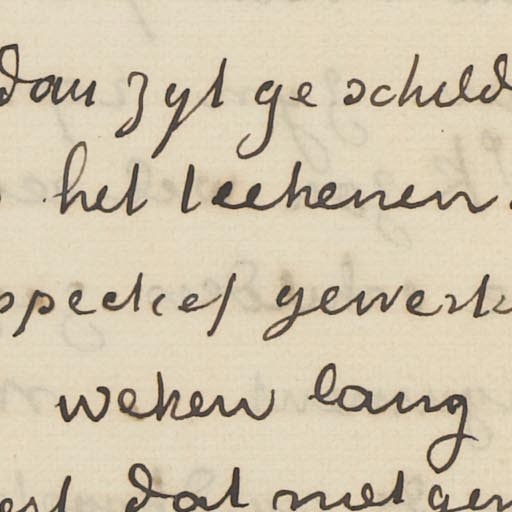 dan zyt ge schild
het teekenen.
spectief gewerk
weken lang
dat met gen